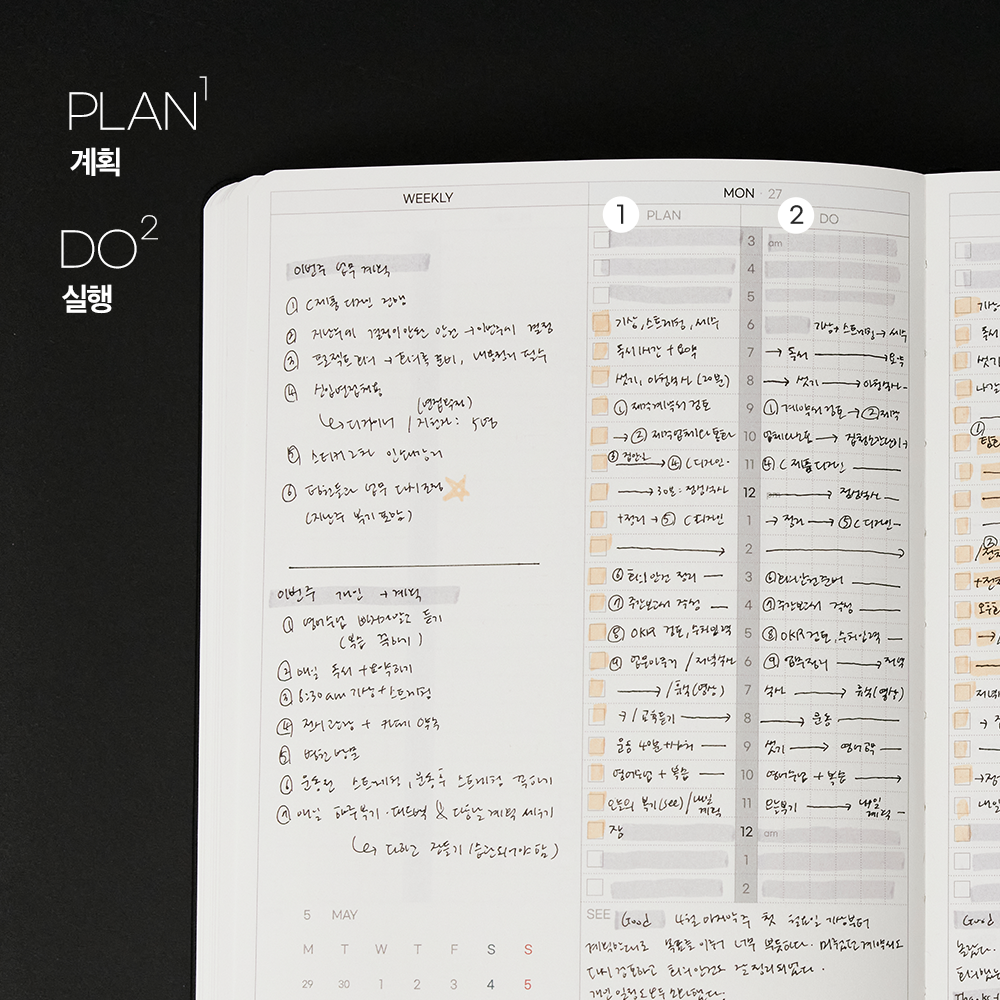 PLAN 1
계획
DO 2
실행
WEEKLY
이번주 업무 계획
① C제품 디자인 진행
② 지난주에 결정이 안된 안건 → 이번주에 결정
③ 프로젝트 회의 → 회의록 준비, 내용정리 필수
④ 신입면접채용
(면접탁자)
↳ 디자이너 / 지원자 : 5명
⑤ 스티커 2차 인쇄감리
⑥ 팀원들과 업무 다시 조정
(지난주 복기 포함)
이번주 개인 → 계획
① 영어수업 빠지지않고 듣기
(복습 꼭하기)
② 매일 독서 + 요약하기
③ 6:30am 기상 + 스트레칭
④ 전시관람 + 카페
⑤ 병원 방문
⑥ 운동전 스트레칭, 운동후 스트레칭 꼭하기
⑦ 매일 하루복기 · 피드백 & 다음날 계획 세우기
↳ 다하고 잠들기 (습관되어야 함)
5 MAY
M T W T F S S
29 30 1 2 3 4 5
MON · 27
1 PLAN 2 DO
3 am
4
5
기상, 스트레칭, 세수 6 기상 → 스트레칭 → 세수
독서 1시간 + 요약 7 → 독서 → 요약
씻기, 아침식사 (20분) 8 → 씻기 → 아침식사 -
① 제작계약서 검토 9 ① 계약서검토 → ② 제작
→ ② 제작업체 10 업체 →
③ → ④ C디자인 · 11 ④ C 제품디자인 —
→ 30분 : 점심식사 12 → 점심식사 —
+ 정리 → ⑤ C 디자인 1 → 정리 → ⑤ C디자인 -
→ 2 →
⑥ 회의안건 정리 — 3 ⑥ 회의안건준비 —
⑦ 주간보고서 작성 — 4 ⑦ 주간보고서 작성 —
⑧ OKR 검토, 수치입력 5 ⑧ OKR 검토, 수치입력 —
⑨ 업무마무리 / 저녁식사 6 ⑨ 업무정리 → 저녁
→ / 휴식(영상) 7 식사 → 휴식(영상)
→ / 교육듣기 → 8 → 운동 —
운동 40분 + 샤워 — 9 씻기 → 영어교육 —
영어수업 + 복습 — 10 영어수업 + 복습 →
오늘의 복기(see) / 내일 계획 11 오늘복기 → 내일 계획 -
잠 12 am
1
2
SEE Good 4월 마지막 주 첫 월요일 기상부터
계획한대로 목표를 이뤄 너무 뿌듯하다. 미뤘던 계약서도
다시 검토하고 회의안건도 잘 정리되었다.
개인 일정도 모두 소화했다.
Good